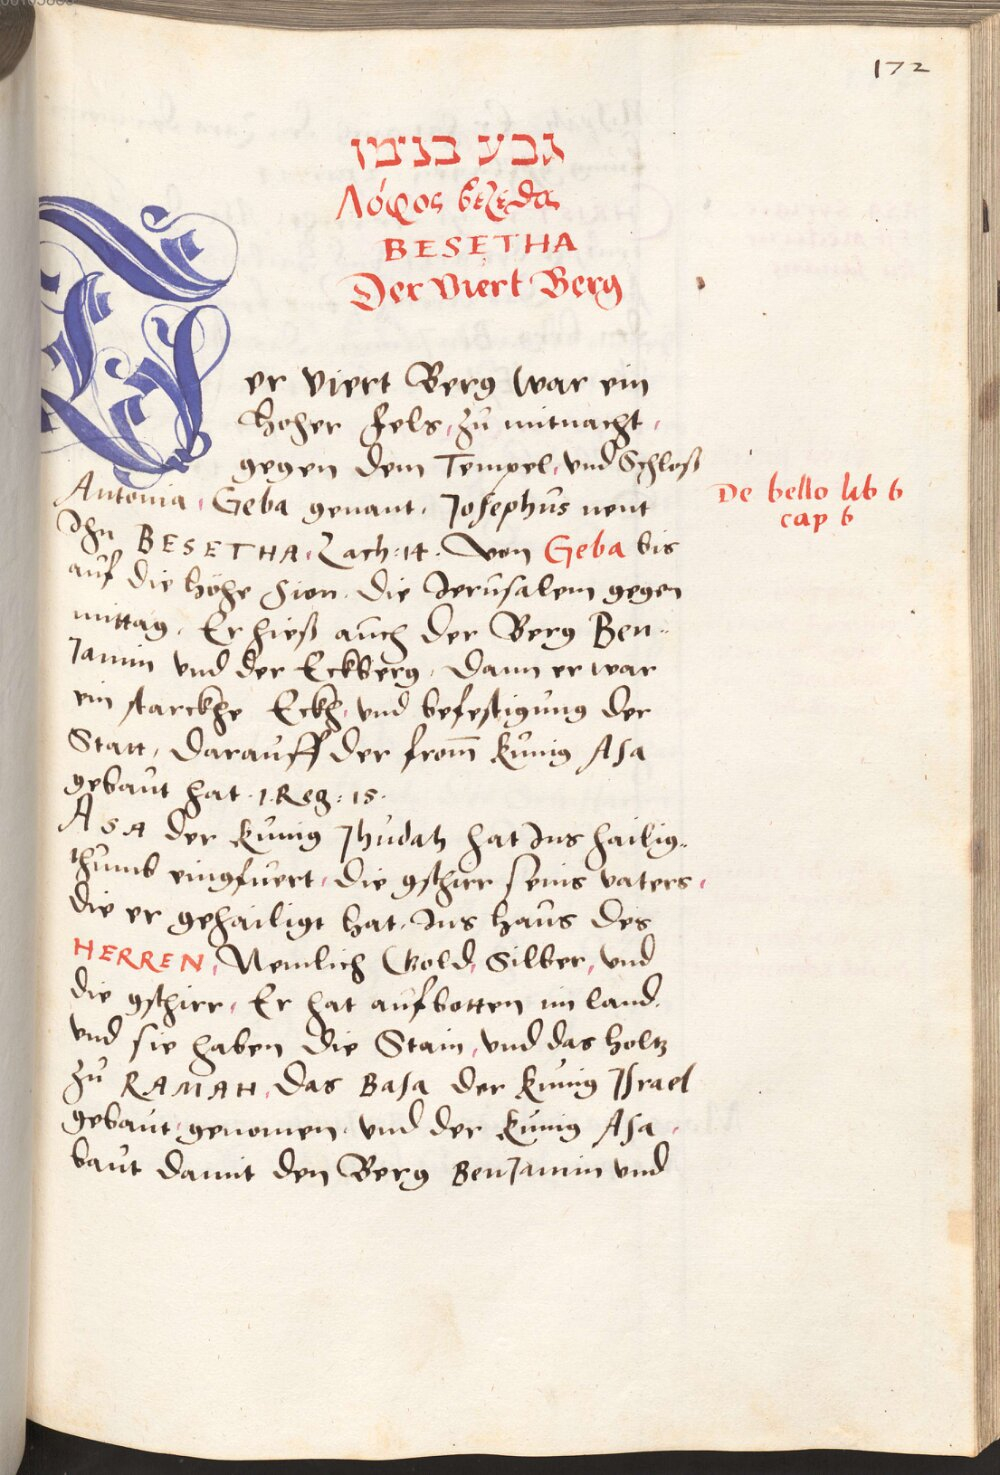 172
גבע בנימן
Λόφος βεζεδα
BESETHA
Der Viert Berg
Der Viert Berg war ein
hoher fels, zů mitnacht,
gegen dem Tempel, vnd Schloß
Antonia, Geba genant, Josephus nent
Ihn BESETHA, Zach: 14. Von Geba bis
auf die höhe Sion, die Jerusalem gegen
mittag. Er hieß auch der Berg Ben-
Jamin vnd der Eckberg, dann er war
ein starckhe Eckh, vnd befestigung der
Statt, darauff der from̄ künig Asa
gebaut hat. 1. Reg: 15.
ASA der künig Jhudah hat Ins hailig-
thumb eingfüert, die gschirr seins vaters,
die er gehailigt hat, Ins haus des
HERREN, Nemlich Gold, Silber, vnd
die gschirr, Er hat aufbotten im land,
vnd sie haben die Stain, vnd das holtz
zů RAMAH, das Basa der künig Israel
gebaut, genomen, vnd der künig Asa,
baut damit den Berg BenJamin vnd
De bello lib 6
cap 6